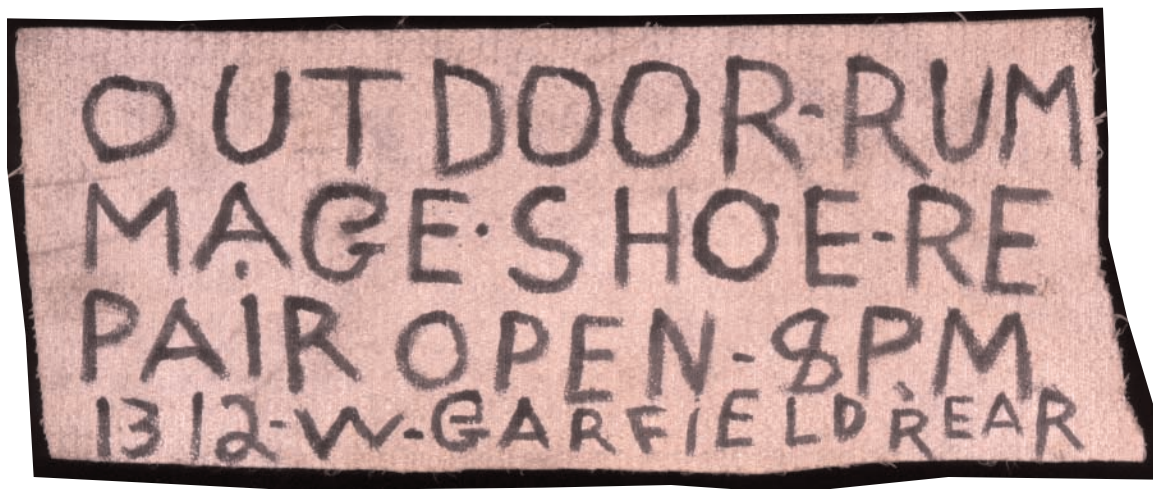 OUTDOOR-RUM
MAGE·SHOE-RE
PAIR OPEN-8PM
1312-W-GARFiELD REAR